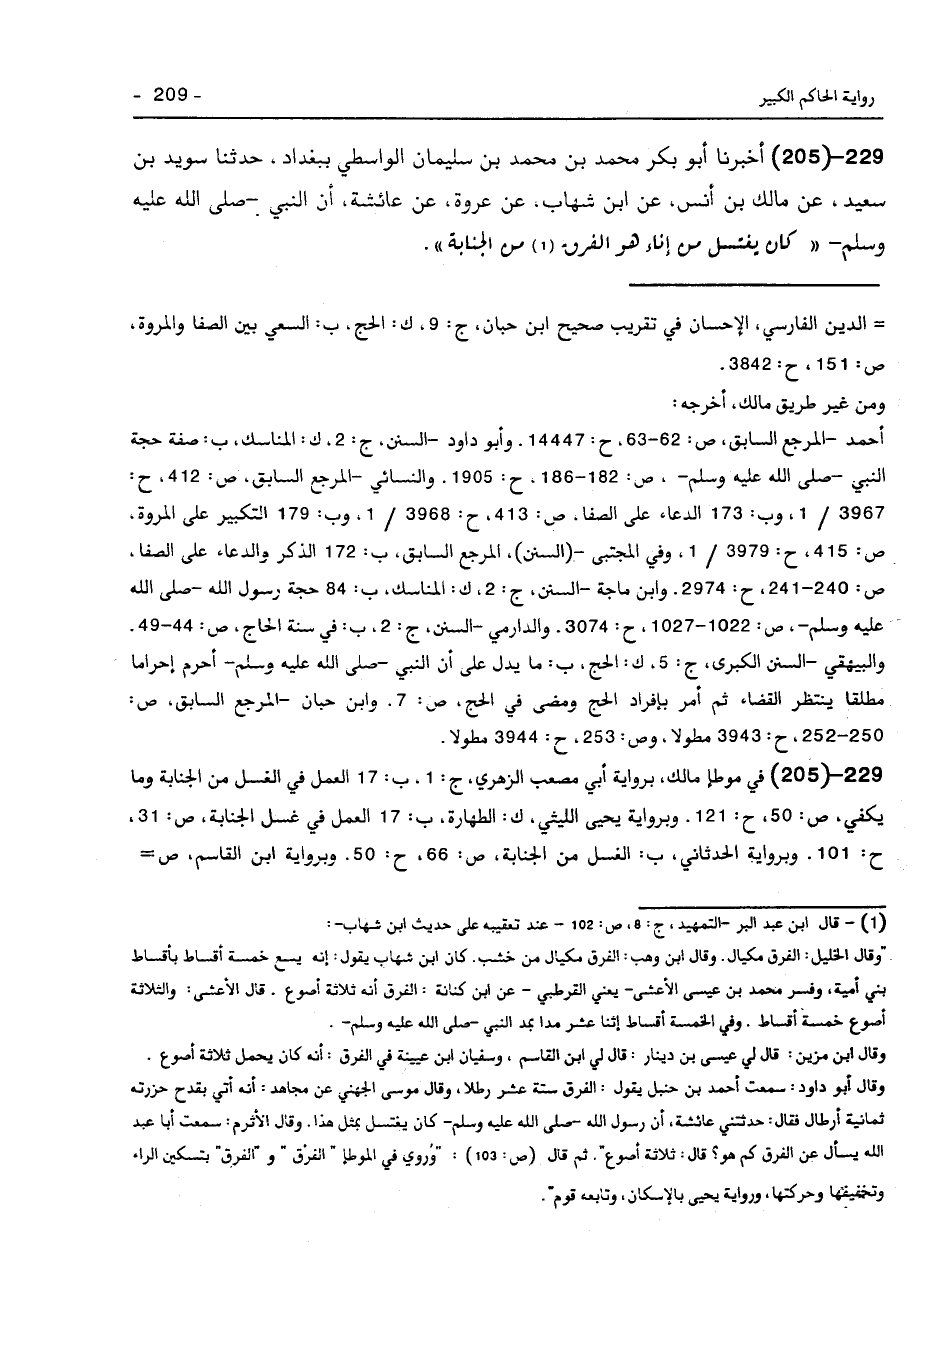 رواية الحاكم الكبير - 209 -
229-(205) أخبرنا أبو بكر محمد بن محمد بن سليمان الواسطي ببغداد ، حدثنا سويد بن
سعيد ، عن مالك بن أنس، عن ابن شهاب، عن عروة، عن عائشة، أن النبي -صلى الله عليه
وسلم- « كان يغتسل من إناء هو الفرق (1) من الجنابة» .
= الدين الفارسي، الإحسان في تقريب صحيح ابن حبان، ج: 9، ك: الحج، ب: السعي بين الصفا والمروة،
ص: 151 ، ح: 3842 .
ومن غير طريق مالك، أخرجه:
أحمد -المرجع السابق، ص: 62-63، ح: 14447 . وأبو داود -السنن، ج: 2، ك: المناسك، ب: صفة حجة
النبي -صلى الله عليه وسلم- ، ص: 182-186 ، ح: 1905 . والنسائي -المرجع السابق، ص: 412، ح:
3967 / 1، وب: 173 الدعاء على الصفا، ص: 413، ح: 3968 / 1، وب: 179 التكبير على المروة،
ص: 415، ح: 3979 / 1 ، وفي المجتبى -(السنن)، المرجع السابق، ب: 172 الذكر والدعاء على الصفا،
ص: 240-241، ح: 2974. وابن ماجة -السنن، ج: 2، ك: المناسك، ب: 84 حجة رسول الله -صلى الله
عليه وسلم-، ص: 1022-1027 ، ح: 3074. والدارمي -السنن، ج: 2، ب: في سنة الحاج، ص: 44-49.
والبيهقي -السنن الكبرى، ج: 5، ك: الحج، ب: ما يدل على أن النبي -صلى الله عليه وسلم- أحرم إحراما
مطلقا ينتظر القضاء ثم أمر بإفراد الحج ومضى في الحج، ص: 7. وابن حبان -المرجع السابق، ص:
250-252، ح: 3943 مطولا، وص: 253، ح: 3944 مطولا.
229-(205) في موطإ مالك، برواية أبي مصعب الزهري، ج: 1 ، ب: 17 العمل في الغسل من الجنابة وما
يكفي، ص: 50، ح: 121. وبرواية يحيى الليثي، ك: الطهارة، ب: 17 العمل في غسل الجنابة، ص: 31،
ح: 101. وبرواية الحدثاني، ب: الغسل من الجنابة، ص: 66، ح: 50. وبرواية ابن القاسم، ص=
(1) - قال ابن عبد البر -التمهيد ، ج: 8، ص: 102 - عند تعقيبه على حديث ابن شهاب-:
"وقال الخليل: الفرق مكيال. وقال ابن وهب: الفرق مكيال من خشب. كان ابن شهاب يقول: إنه يسع خمسة أقساط بأقساط
بني أمية، وفسر محمد بن عيسى الأعشى- يعني القرطبي - عن ابن كنانة : الفرق أنه ثلاثة أصوع . قال الأعشى: والثلاثة
أصوع خمسة أقساط . وفي الخمسة أقساط إثنا عشر مدا بمد النبي -صلى الله عليه وسلم- .
وقال ابن مزين: قال لي عيسى بن دينار : قال لي ابن القاسم ، وسفيان ابن عيينة في الفرق : أنه كان يحمل ثلاثة أصوع .
وقال أبو داود : سمعت أحمد بن حنبل يقول : الفرق ستة عشر رطلا، وقال موسى الجهني عن مجاهد : أنه أتي بقدح حزرته
ثمانية أرطال فقال: حدثتني عائشة، أن رسول الله -صلى الله عليه وسلم- كان يغتسل بمثل هذا. وقال الأثرم: سمعت أبا عبد
الله يسأل عن الفرق كم هو؟ قال: ثلاثة أصوع". ثم قال (ص: 103) : "وروي في الموطإ "الفرْق " و "الفرق" بتسكين الراء
وتخفيفها وحركتها، ورواية يحيى بالإسكان، وتابعه قوم".